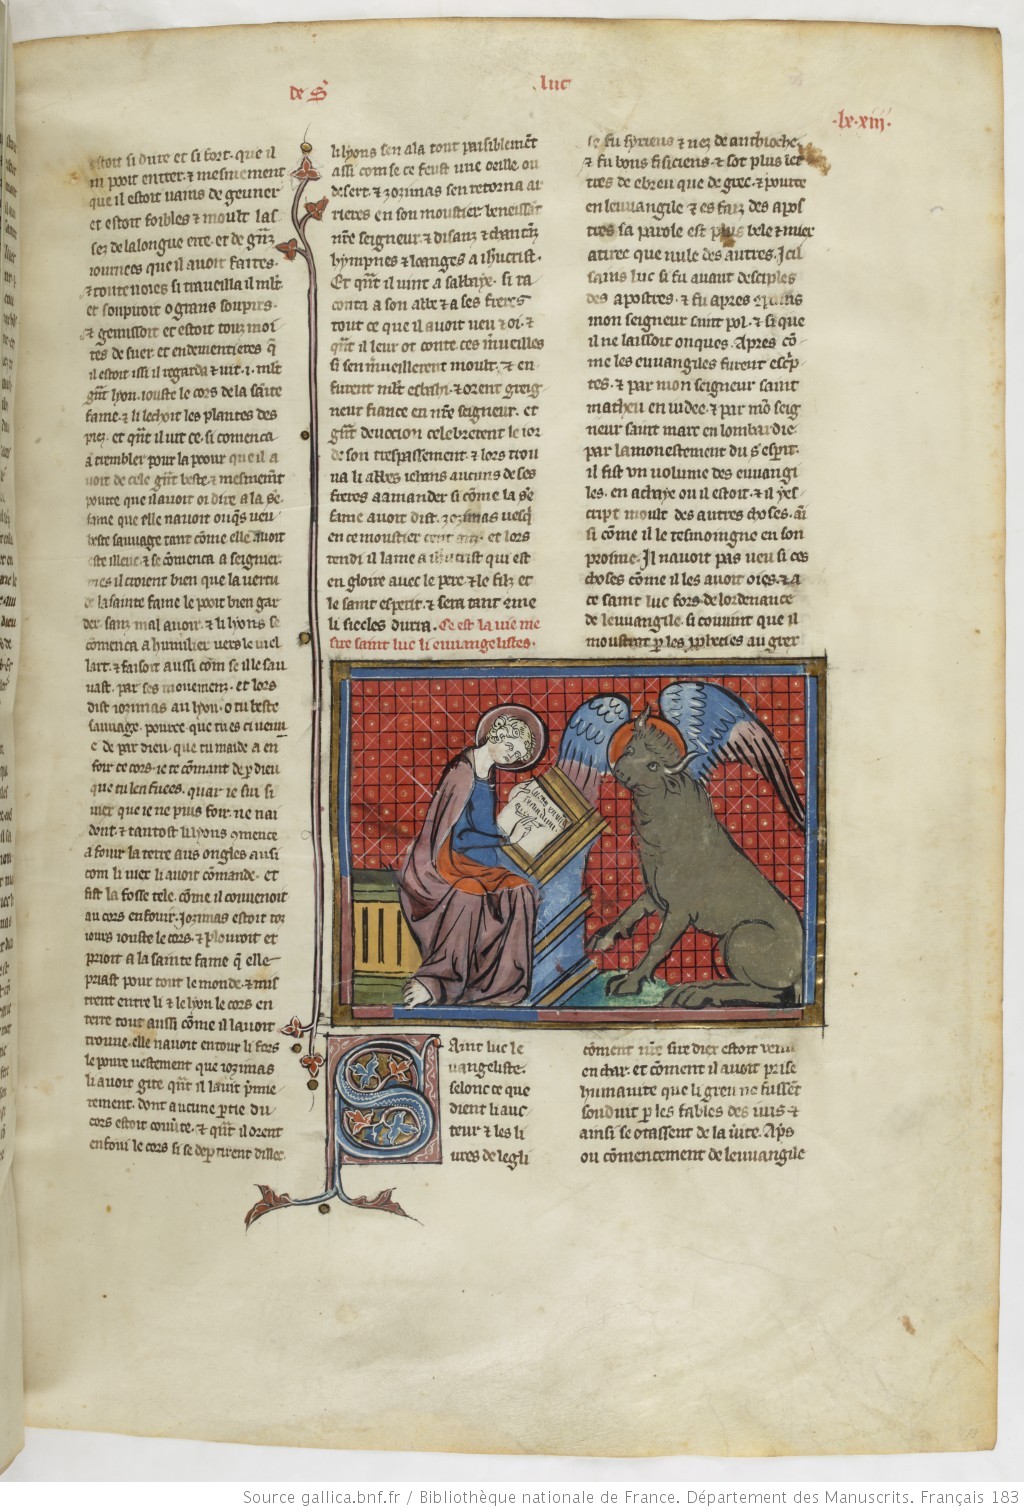 de S luc
.lx.xiii.
estoit si dure et si fort. que il
ni pooit entrer. ⁊ mesmement
que il estoit vains de geuner
et estoit foibles ⁊ moult las
sez de la longue erre. et de gnz
iournees que il auoit faites.
⁊ toute uoies si trauailla il mlt
et soupiroit o grans soupirs.
⁊ gemissoit et estoit touz moi
tes de suer. et endementieres q̄
il estoit issi il regarda ⁊ uit .i. mlt
gn̄t lyon. iouste le cors de la sainte
fame. ⁊ li lechoit les plantes des
piez. et qn̄t il uit ce. si comenca
a trembler pour la poour que il a
uoit de cele gn̄t beste. ⁊ mesmem̄t
pource que il auoit oi dire a la s̄te
fame que elle nauoit onq̄s veu
beste sauuage tant cōme elle auoit
este illeuc. ⁊ se cōmenca a seignier.
mes il creoient bien que la uertu
de la sainte fame le pooit bien gar
der sanz mal auoir. ⁊ li lyons se
cōmenca a humilier uers le uiel
lart. ⁊ faisoit aussi com se il le sau
uast. par ses mouemenz. et lors
dist iozimas au lyon. o tu beste
sauuage. pource que tu es ci uenu
e de par dieu. que tu maide a en
foir ce cors. ie te cōmant de p̄ dieu
que tu len fuees. quar ie sui si
uiex que ie ne puis foir. ne nai
dont. ⁊ tantost li lyons ꝯmence
a fouir la terre aus ongles ausi
com li uiex li auoit cōmande. et
fist la fosse tele. cōme il conuenoit
au cors enfouir. Jozimas estoit toz
iours iouste le cors. ⁊ plouroit et
prioit a la sainte fame q̄ elle
priast pour tout le monde. ⁊ mis
trent entre li ⁊ le lyon le cors en
terre tout aussi cōme il lauoit
trouue. elle nauoit entour li fors
le poure uestement que iozimas
li auoit gite qn̄t il la uit p̄mie
rement. dont aucune p̄tie du
cors estoit couūte. ⁊ qn̄t il orent
enfoui le cors si se dep̄tirent dillec.
li lyons sen ala tout paisiblem̄t
assi com se ce feust une oeille ou
desert. ⁊ zozimas sen retorna ar
rieres en son moustier beneissāt
nr̄e seigneur. ⁊ disanz ⁊ chantāz
hympnes ⁊ loanges a ihūcrist.
Et qn̄t il uint a sabbaye. si ra
conta a son abbe ⁊ a ses freres
tout ce que il auoit ueu ⁊ oi. ⁊
qn̄t il leur ot conte ces m̄ueilles
si sen m̄ueillerent moult. ⁊ en
furent mlt esbahi. ⁊ orent greig
neur fiance en nr̄e seigneur. et
gn̄t deuocion celebrerent le ior
de son trespassement. ⁊ lors trou
ua li abbes iehans aucuns de ses
freres a amander si cōme la s̄te
fame auoit dist. zozimas vesq̄
en ce moustier cent anz. et lors
rendi il lame a ihūcrist qui est
en gloire auec le pere. ⁊ le filz et
le saint esperit. ⁊ sera tant que
li siecles durra. Ce est la vie me
sire saint luc li euuangelistes.
Saint luc le
uangeliste.
selonc ce que
dient li auc
teur ⁊ les li
ures de legli
se fu syriens ⁊ nez de anthioche.
⁊ fu bons fisiciens. ⁊ sot plus let
tres de ebreu que de grec. ⁊ pource
en leuuangile ⁊ es faiz des apos
tres sa parole est plus bele ⁊ miex
atiree que nule des autres. Icil
sains luc si fu auant desciples
des apostres. ⁊ fu apres
mon seigneur saint pol. ⁊ si que
il ne laissoit onques. Apres cō
me les euuangiles furent esc̄p
tes. ⁊ par mon seigneur saint
matheu en iudee. ⁊ par mō seig
neur saint marc en lombardie.
par lamonestement du s' esperit.
il fist vn volume des euuangi
les. en achaye ou il estoit. ⁊ il yes
cript moult des autres choses. au
si cōme il le tesmoingne en son
prosme. Il nauoit pas veu si ces
choses cōme il les auoit oies. ⁊ a
ce saint luc fors de lordenance
de leuuangile. si couuint que il
moustrast p̄ les p̄pheties au grex
cōment nr̄e sire diex estoit uenu
en char. et cōment il auoit prise
humanite que li grieu ne fussēt
souduit p̄ les fables des iuis. ⁊
ainsi se otassent de la ūite. Ap̄s
ou cōmencement de leuuangile
Source gallica.bnf.fr / Bibliothèque nationale de France. Département des Manuscrits. Français 183